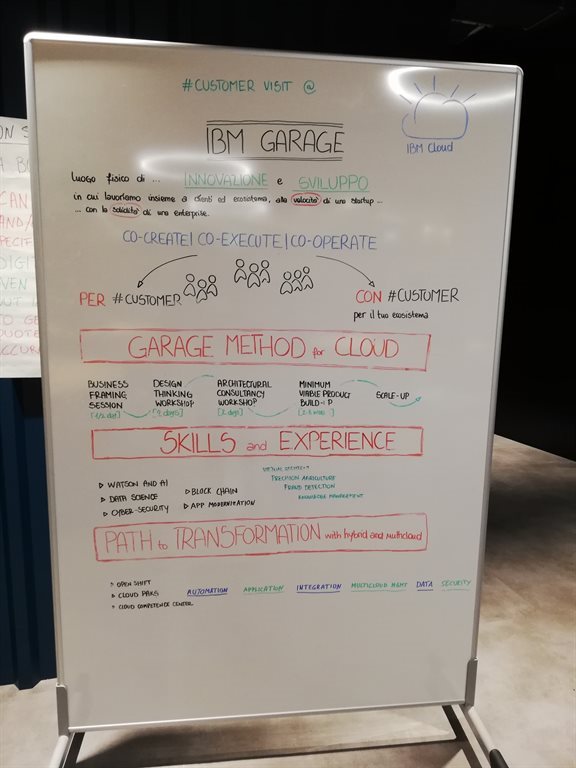 #CUSTOMER VISIT @
IBM Cloud
IBM GARAGE
Luogo fisico di ... INNOVAZIONE e SVILUPPO
in cui lavoriamo insieme a clienti ed ecosistema, alla velocità di una startup ...
... con la solidità di una enterprise.
CO-CREATE | CO-EXECUTE | CO-OPERATE
PER #CUSTOMER
CON #CUSTOMER
per il tuo ecosistema
GARAGE METHOD for CLOUD
BUSINESS FRAMING SESSION
DESIGN THINKING WORKSHOP
[2 days]
ARCHITECTURAL CONSULTANCY WORKSHOP
[2 days]
MINIMUM VIABLE PRODUCT BUILD-UP
SCALE-UP
SKILLS and EXPERIENCE
▷ WATSON AND AI
▷ DATA SCIENCE
▷ CYBER-SECURITY
▷ BLOCK CHAIN
▷ APP MODERNIZATION
VIRTUAL ASSISTANT
PRECISION AGRICULTURE
FRAUD DETECTION
KNOWLEDGE MANAGEMENT
PATH to TRANSFORMATION with hybrid and multicloud
▷ OPEN SHIFT
▷ CLOUD PAKS
▷ CLOUD COMPETENCE CENTER
AUTOMATION APPLICATION INTEGRATION MULTICLOUD MGMT DATA SECURITY